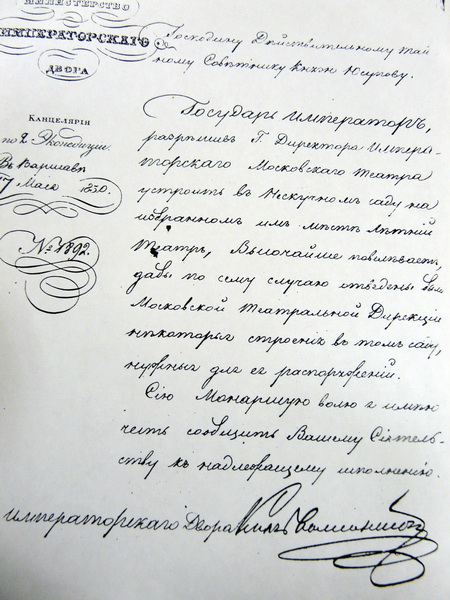 МИНИСТЕРСТВО
ИМПЕРАТОРСКАГО
ДВОРА
Канцелярія
по 2 Экспедиціи.
Въ Варшавѣ
17 Мая 1830.
№ 1892.
Господину Дѣйствительному тай
ному Совѣтнику Князю Юсупову.
Государь Императоръ,
разрѣшивъ Г. Директора Импера-
торскаго Московскаго Театра
устроить въ Нескучномъ саду на
избранномъ имъ мѣстѣ лѣтній
Театръ, Высочайше повелѣваетъ,
дабы по сему случаю отведены были
Московской Театральной Дирекціи
нѣкоторыя строенія въ томъ саду,
нужныя для ея распоряженій.
Сію Монаршую волю я имѣю
честь сообщить Вашему Сіятель-
ству къ надлежащему исполненію.
Императорскаго Двора Князь Волконскій